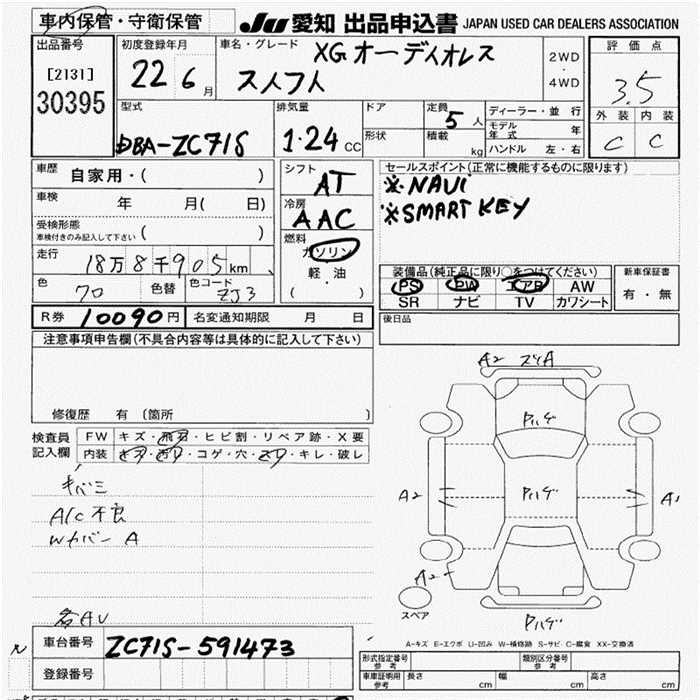 車内保管・守衛保管
JU 愛知 出品申込書 JAPAN USED CAR DEALERS ASSOCIATION
出品番号
[2131]
30395
初度登録年月
22 6月
車名・グレード
XG オーディオレス
スイフト
2WD
・
4WD
評価点
3.5
外装 内装
C C
型式
DBA-ZC71S
排気量
1.24 CC
ドア
形状
定員
5人
積載
kg
ディーラー・並行
モデル年式 年
ハンドル 左・右
車歴
自家用・( )
車検
年 月( 日)
受検形態
車検付きのみ記入して下さい ( )
走行
18万8千905km
色
70
色替
色コード
ZJ3
シフト
AT
冷房
AAC
燃料
ガソリン
軽・油
( )
セールスポイント(正常に機能するものに限ります)
※NAVI
※SMART KEY
装備品(純正品に限り〇をつけてください)
PS PW エアB AW
SR ナビ TV カワシート
新車保証書
有・無
R券 10090円
名変通知期限 月 日
後日品
注意事項申告欄(不具合内容等は具体的に記入して下さい)
修復歴 有 〔箇所 〕
検査員
記入欄
FW キズ・飛石・ヒビ割・リペア跡・X要
内装 キズ・汚れ・コゲ・穴・スレ・キレ・破レ
A/C不良
Wカバー A
各AU
A2 ズレA
Pハゲ
Pハゲ
A2
A1
A2
スペア
Pハゲ
A-キズ E-エクボ U-凹み W-補修跡 S-サビ C-腐食 XX-交換済
車台番号
ZC71S-591473
登録番号
形式指定番号
参考
類別区分番号
参考
車庫証明用
参考
長さ cm
幅 cm
高さ cm